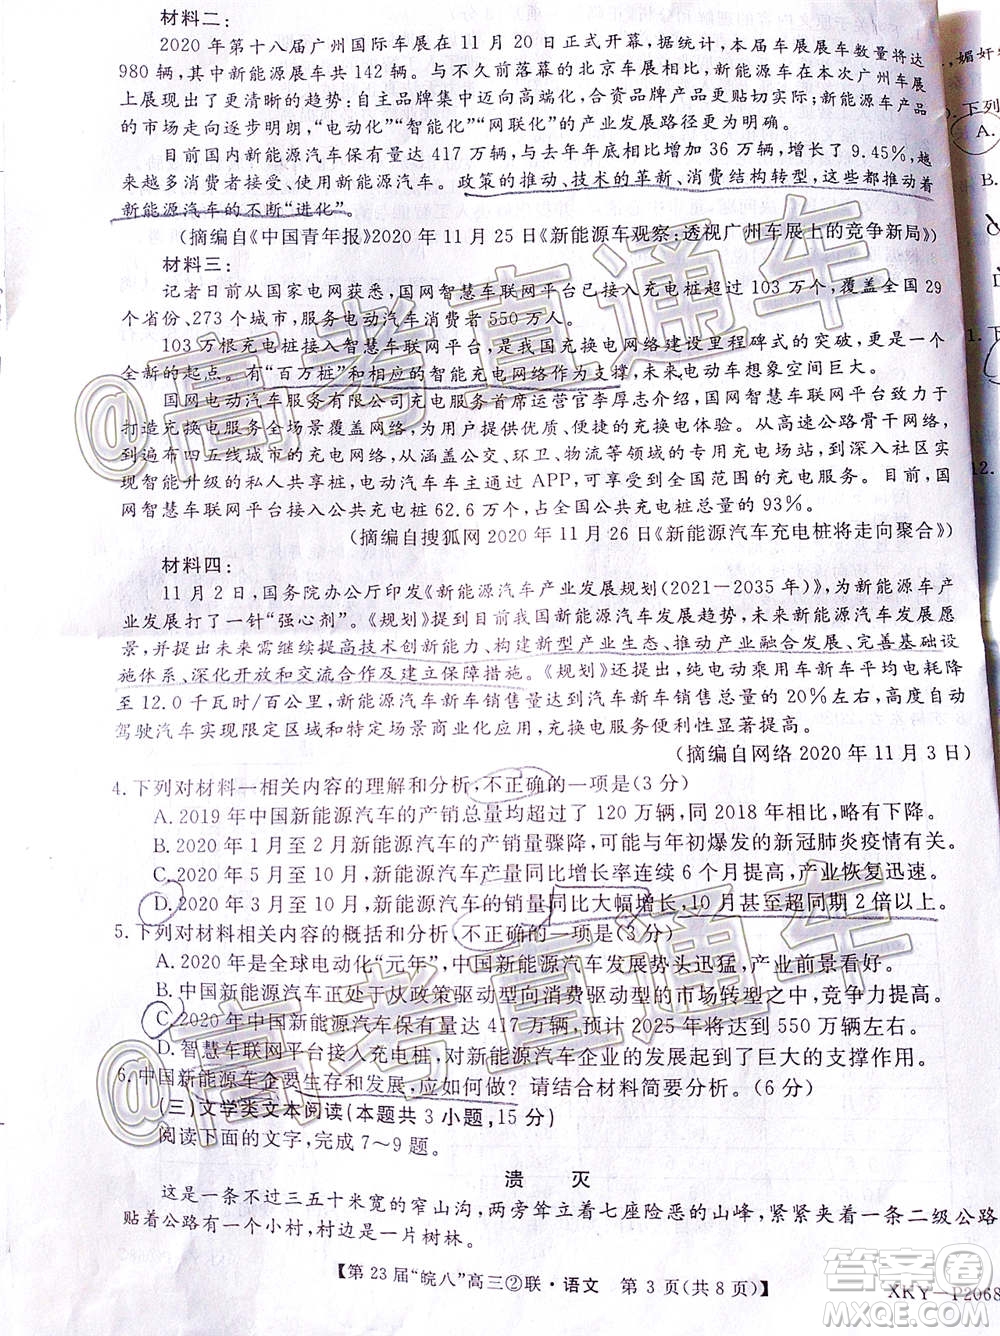 材料二：
2020年第十八届广州国际车展在11月20日正式开幕，据统计，本届车展展车数量将达
980辆，其中新能源展车共142辆。与不久前落幕的北京车展相比，新能源车在本次广州车展
上展现出了更清晰的趋势：自主品牌集中迈向高端化，合资品牌产品更贴切实际；新能源车产品
的市场走向逐步明朗，“电动化”“智能化”“网联化”的产业发展路径更为明确。
目前国内新能源汽车保有量达417万辆，与去年年底相比增加36万辆，增长了9.45%，越
来越多消费者接受、使用新能源汽车。政策的推动、技术的革新、消费结构转型，这些都推动着
新能源汽车的不断“进化”。
（摘编自《中国青年报》2020年11月25日《新能源车观察：透视广州车展上的竞争新局》）
材料三：
记者日前从国家电网获悉，国网智慧车联网平台已接入充电桩超过103万个，覆盖全国29
个省份、273个城市，服务电动汽车消费者550万人。
103万根充电桩接入智慧车联网平台，是我国充换电网络建设里程碑式的突破，也是一个
全新的起点。有“百万桩”和相应的智能充电网络作为支撑，未来电动车想象空间巨大。
国网电动汽车服务有限公司充电服务首席运营官李厚志介绍，国网智慧车联网平台着力
打造充换电服务全场景覆盖网络，为用户提供更优的充换电体验。从高速公路骨干网络，
到遍布四五线城市的充电网络；从公交、环卫、物流等领域的专用充电场站，到深入社区实现
智能升级的私人共享桩，电动汽车车主通过APP，可享受便利的充换电服务。目前，国
网智慧车联网平台接入公共充电桩62.6万个，占全国公共充电桩总量的93%。
（摘编自搜狐网2020年11月26日《新能源汽车充电桩将走向聚合》）
材料四：
11月2日，国务院办公厅印发《新能源汽车产业发展规划（2021－2035年）》，为新能源车产
业发展打了一针“强心剂”。《规划》提到目前我国新能源车发展趋势，未来新能源车发展愿
景，并提出未来需继续提高技术创新能力、构建新型产业生态、推动产业融合发展、完善基础设
施体系、深化开放和交流合作及建立保障措施。《规划》还提出，纯电动乘用车新车平均电耗降
至12.0千瓦时/百公里，新能源汽车新车销售量达到汽车新车销售总量的20%左右，高度自动
驾驶汽车实现限定区域和特定场景商业化应用，充换电服务便利性显著提高。
（摘编自网络2020年11月3日）
4.下列对材料一相关内容的理解和分析，不正确的一项是（3分）
A.2019年中国新能源汽车的产销总量均超过了120万辆，同2018年相比，略有下降。
B.2020年1月至2月新能源汽车的产销量骤降，可能与年初爆发的新冠肺炎疫情有关。
C.2020年5月至10月，新能源汽车产量同比增长率连续6个月提高，产业恢复迅速。
D.2020年3月至10月，新能源汽车的销量同比大幅增长，10月甚至超同期2倍以上。
5.下列对材料相关内容的概括和分析，不正确的一项是（3分）
A.2020年是全球电动化“元年”，中国新能源汽车发展势头迅猛，产业前景看好。
B.中国新能源汽车正处于从政策驱动型向消费驱动型的市场转型之中，竞争力提高。
C.2020年中国新能源汽车保有量达417万辆，预计2025年将达到550万辆左右。
D.智慧车联网平台接入充电桩，对新能源汽车企业的发展起到了巨大的支撑作用。
6.中国新能源车企要生存和发展，应如何做？请结合材料简要分析。（6分）
（三）文学类文本阅读（本题共3小题，15分）
阅读下面的文字，完成7～9题。
溃 灭
这是一条不过三五十米宽的窄山沟，两旁耸立着七座险恶的山峰，紧紧夹着一条二级公路
贴着公路有一个小村，村边是一片树林。
【第23届“皖八”高三②联·语文 第3页（共8页）】
XKY—P2068
@高考直通车
@高考直通车
答案圈
，媚奸
下列
A.
B.
1.下
12.